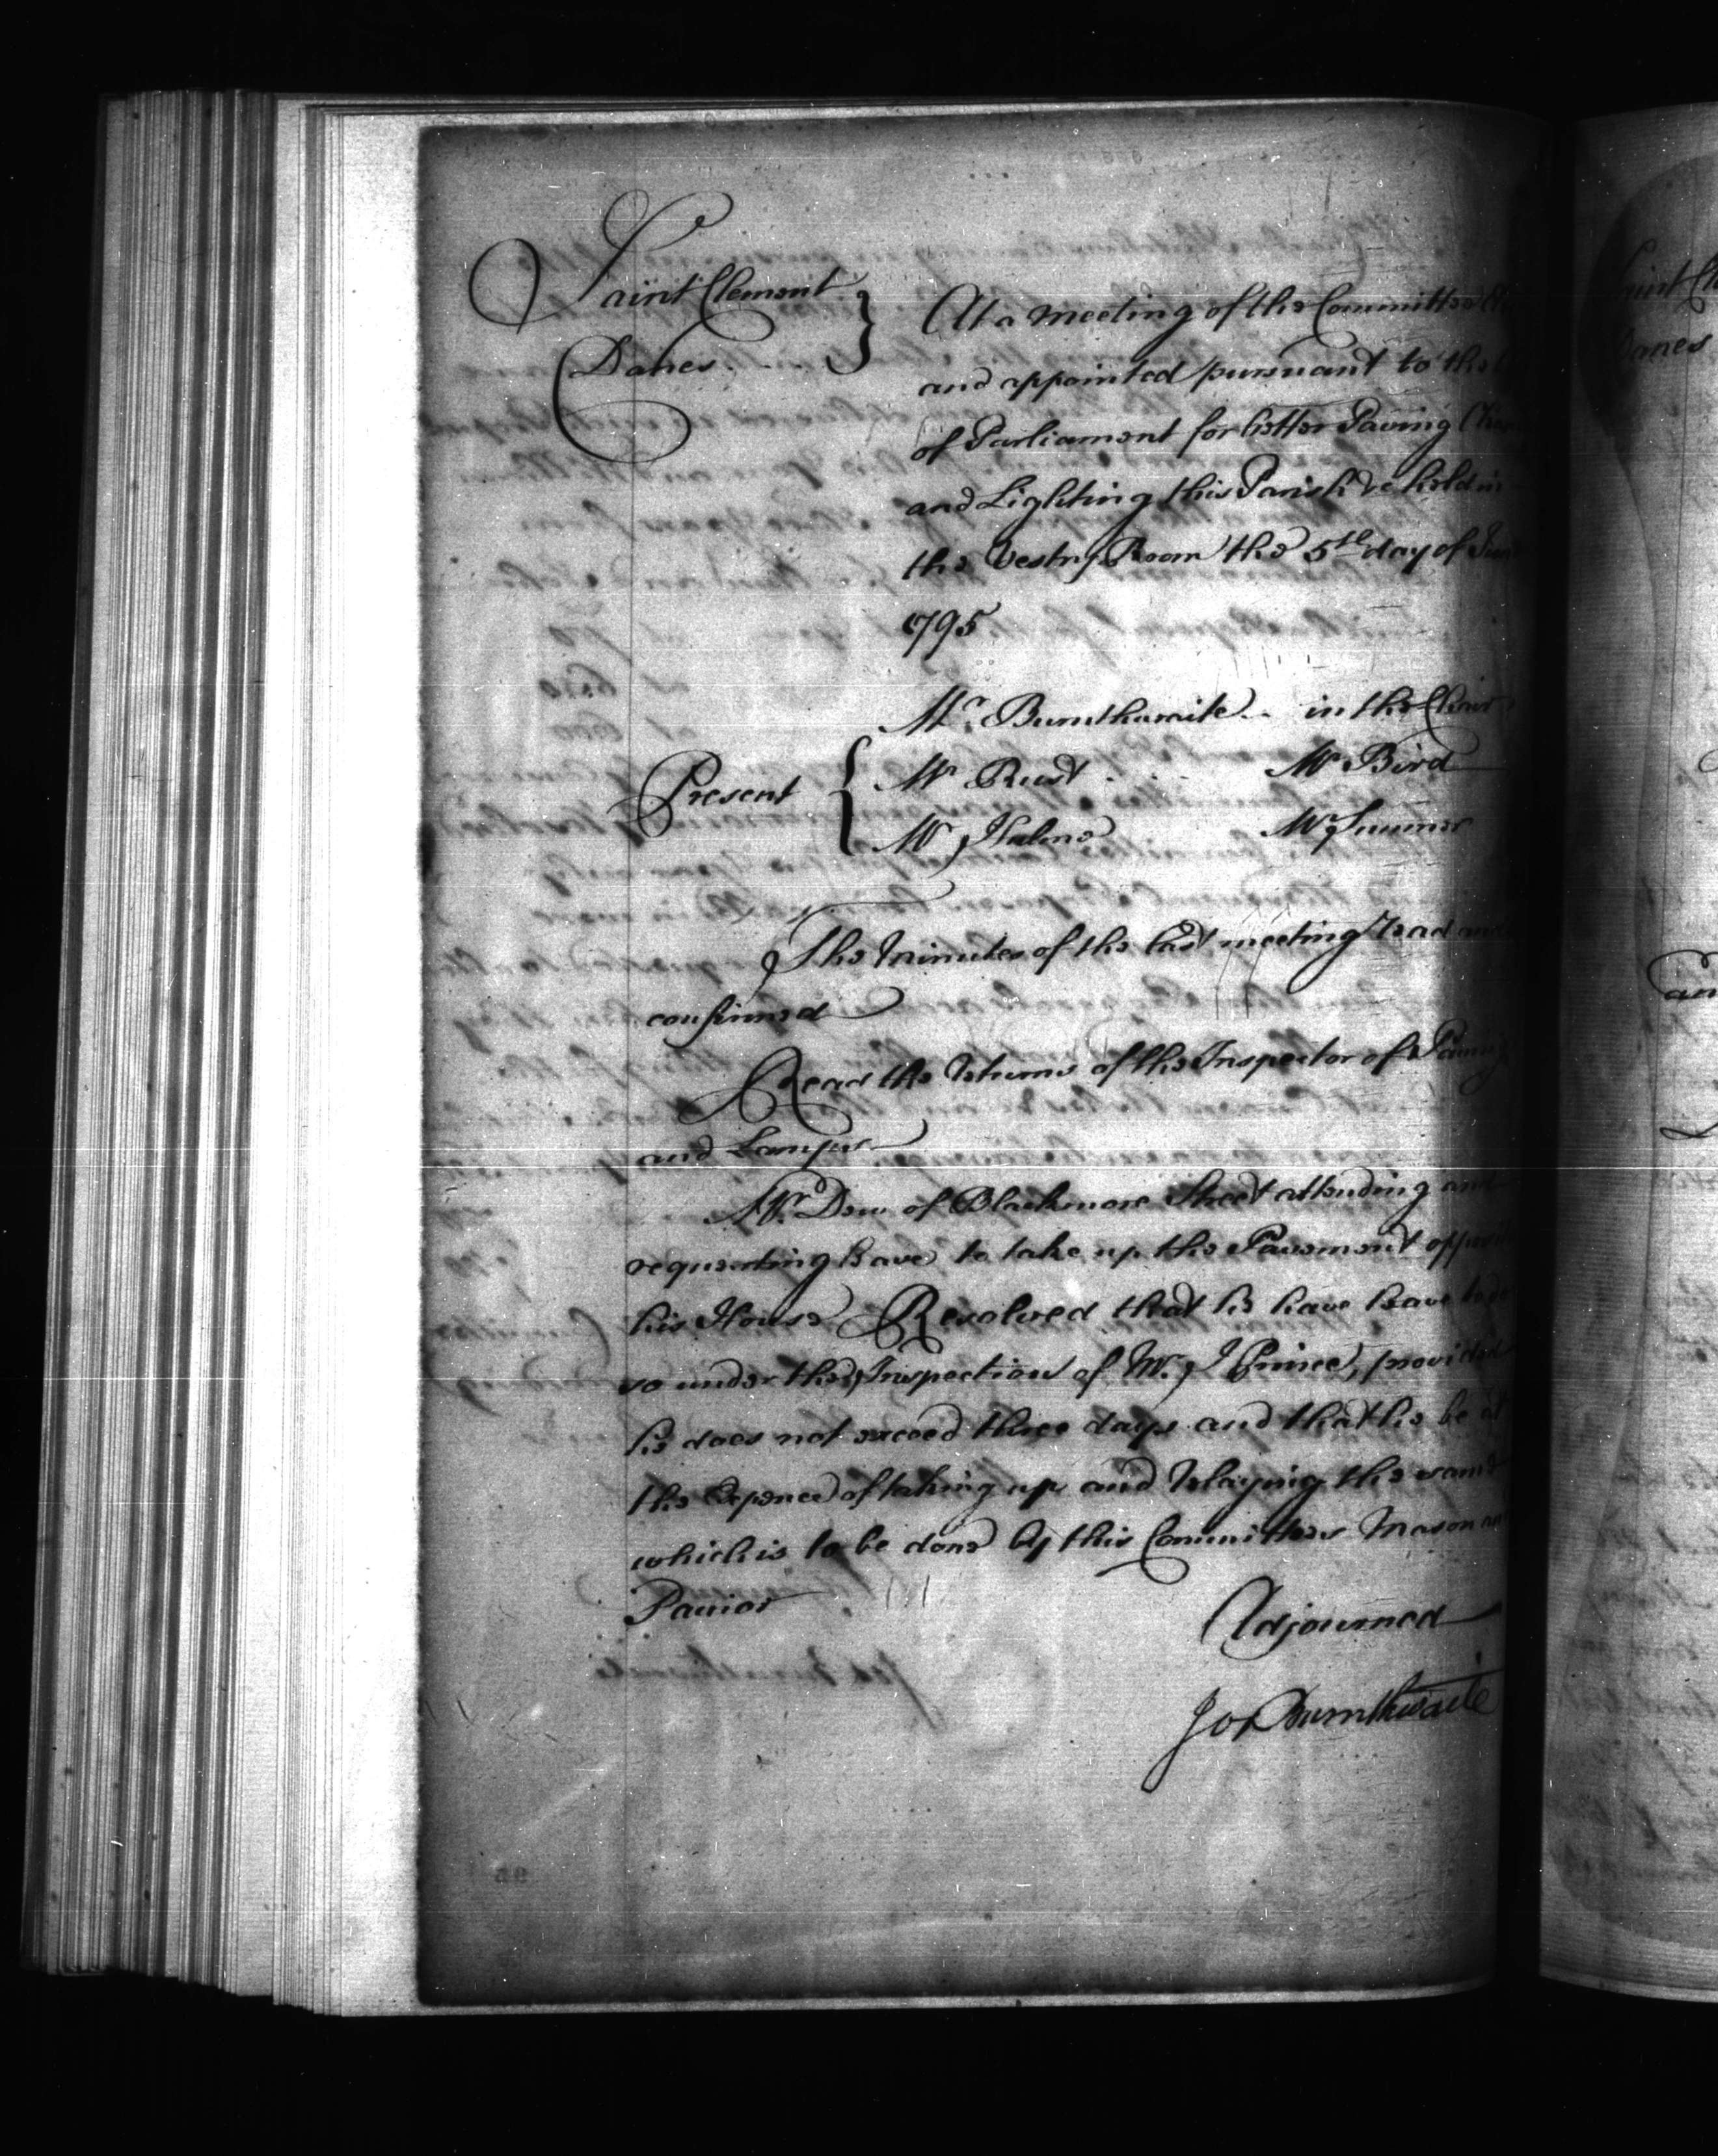 Saint Clement
Danes
At a Meeting of the Committee
and appointed pursuant to the
of Parliament for better Paving
and Lighting this Parish &c held in
the Vestry Room the 5th day of
1795
Mr. Burnthwaite in the Chair
Present
Mr Rust
Mr Bird
Mr Hulme
Mr Sumner
The Minutes of the last meeting read and
confirmed
Read the Returns of the Inspector of Paving
and Lamps
Mr. Dow of Blackmore Street attending and
requesting leave to take up the Pavement opposite
his House Resolved that he have leave to do
so under the Inspection of Mr. J Prince, provided
he does not exceed three days and that he be at
the Expence of taking up and relaying the same
which is to be done by this Committees Mason and
Pavior
Adjourned
Jos Burnthwaite